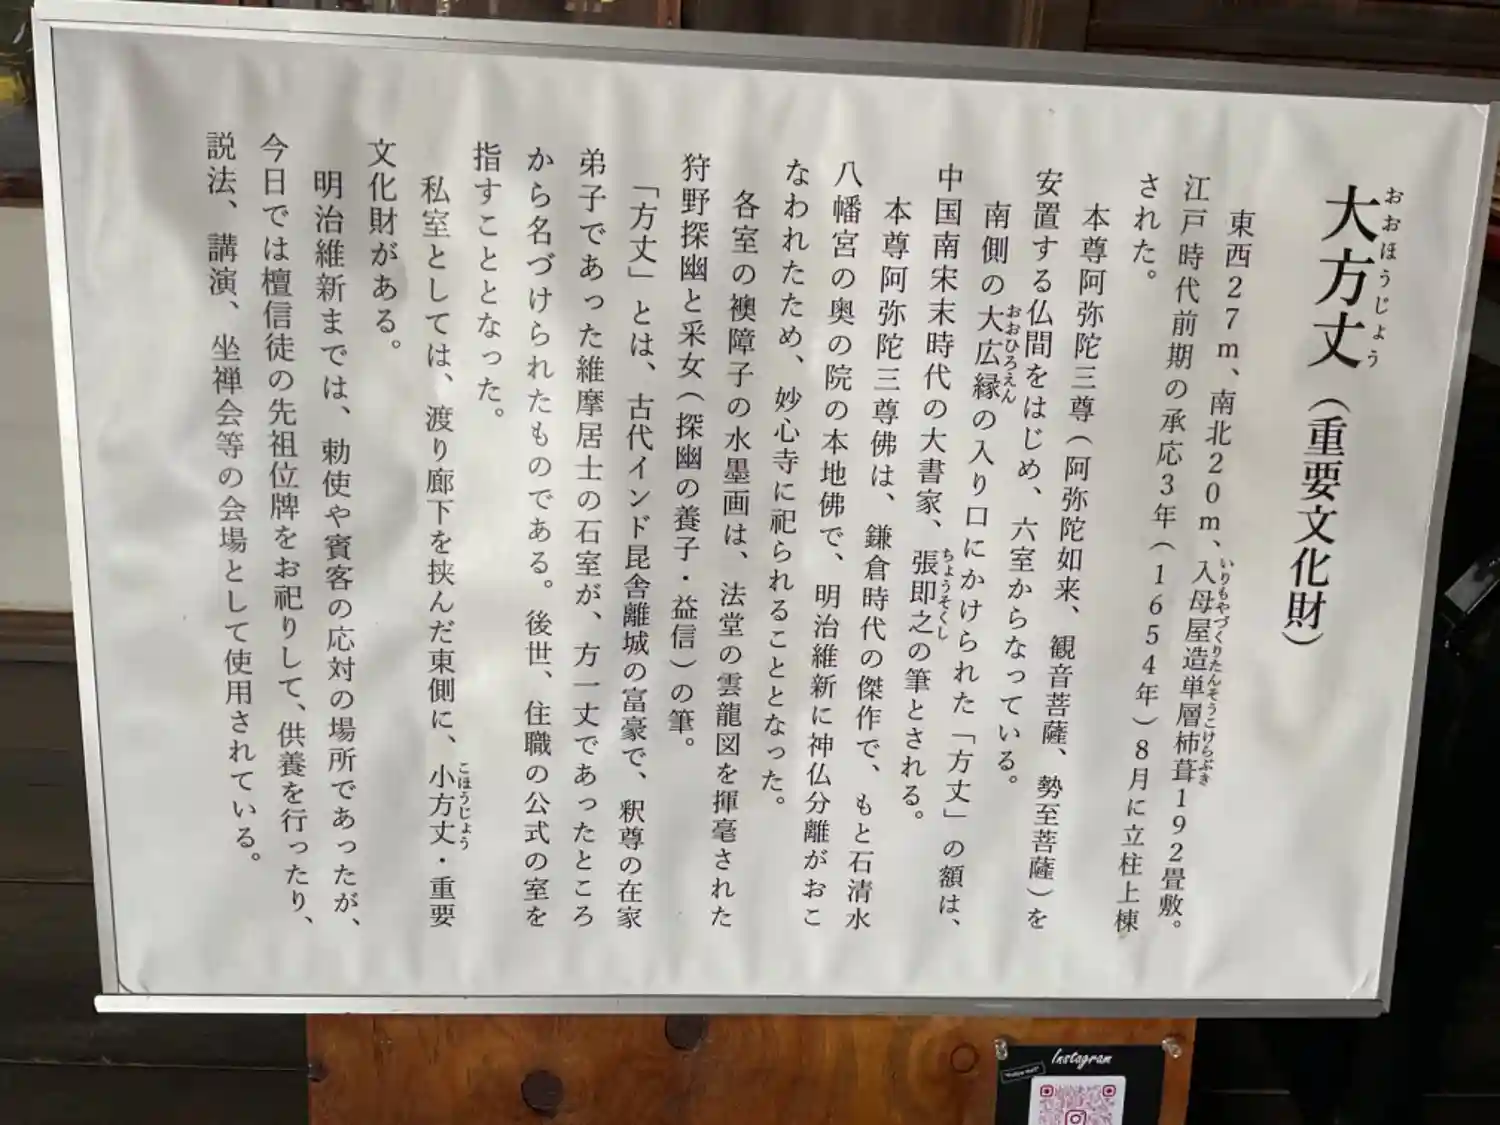 大方丈（重要文化財）
おおほうじょう
東西27m、南北20m、入母屋造単層柿葺192畳敷。
いりもやづくりたんそうこけらぶき
江戸時代前期の承応3年（1654年）8月に立柱上棟
された。
本尊阿弥陀三尊（阿弥陀如来、観音菩薩、勢至菩薩）を
安置する仏間をはじめ、六室からなっている。
南側の大広縁の入り口にかけられた「方丈」の額は、
おおひろえん
中国南宋末時代の大書家、張即之の筆とされる。
ちょうそくし
本尊阿弥陀三尊佛は、鎌倉時代の傑作で、もと石清水
八幡宮の奥の院の本地佛で、明治維新に神仏分離がおこ
なわれたため、妙心寺に祀られることとなった。
各室の襖障子の水墨画は、法堂の雲龍図を揮毫された
狩野探幽と采女（探幽の養子・益信）の筆。
「方丈」とは、古代インド昆舎離城の富豪で、釈尊の在家
弟子であった維摩居士の石室が、方一丈であったところ
から名づけられたものである。後世、住職の公式の室を
指すこととなった。
私室としては、渡り廊下を挟んだ東側に、小方丈・重要
こほうじょう
文化財がある。
明治維新までは、勅使や賓客の応対の場所であったが、
今日では檀信徒の先祖位牌をお祀りして、供養を行ったり、
説法、講演、坐禅会等の会場として使用されている。
Instagram